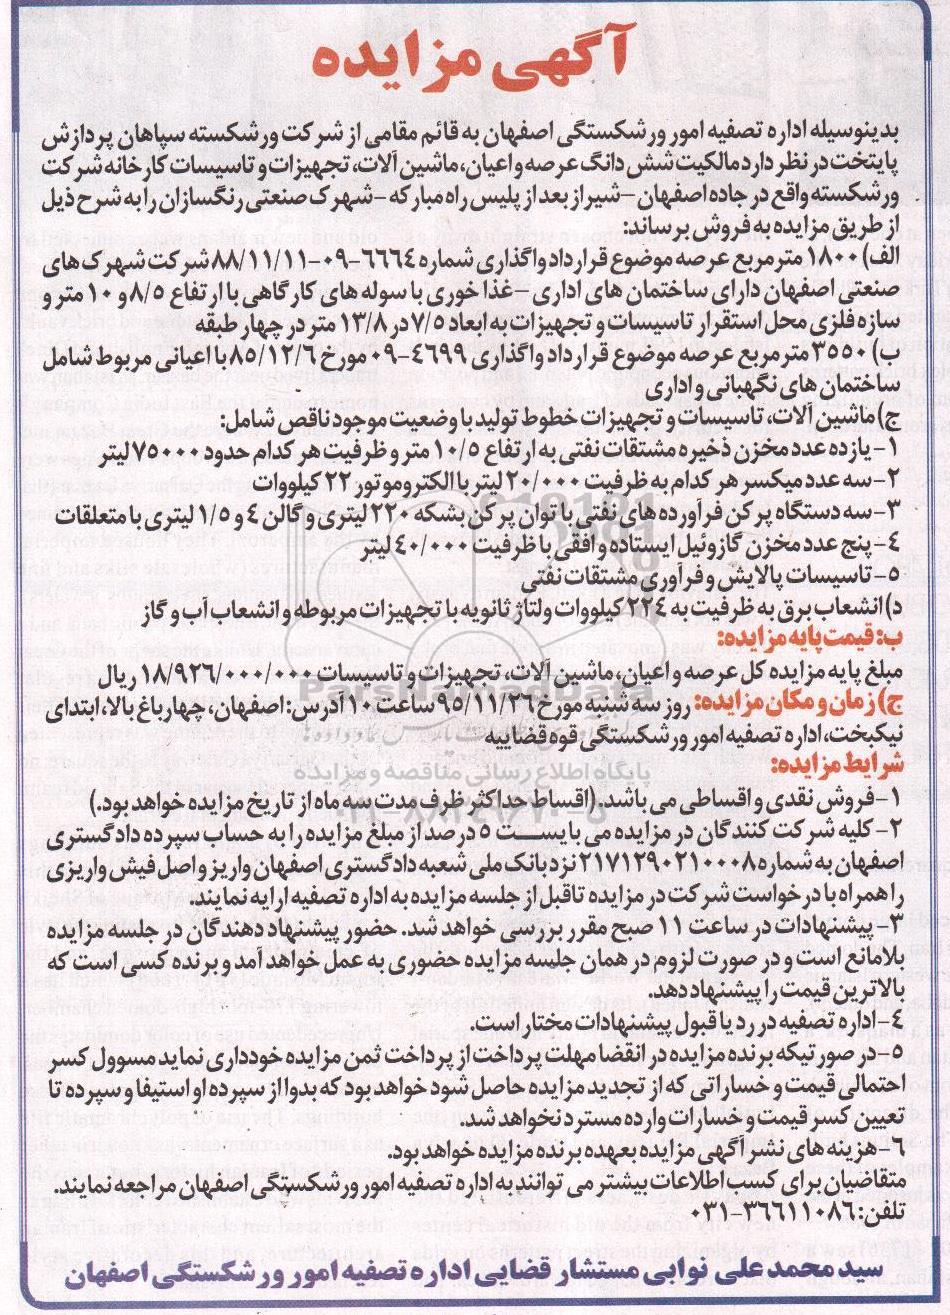 آگهی مزایده
بدینوسیله اداره تصفیه امور ورشکستگی اصفهان به قائم مقامی از شرکت ورشکسته سپاهان پردازش
پایتخت در نظر دارد مالکیت شش دانگ عرصه و اعیان، ماشین آلات، تجهیزات و تاسیسات کارخانه شرکت
ورشکسته واقع در جاده اصفهان - شیراز بعد از پلیس راه مبارکه - شهرک صنعتی رنگسازان را به شرح ذیل
از طریق مزایده به فروش برساند:
الف) ۱۸۰۰ متر مربع عرصه موضوع قرارداد واگذاری شماره ۶۶۶۴-۰۹-۸۸/۱۱/۱۱ شرکت شهرک های
صنعتی اصفهان دارای ساختمان های اداری - غذا خوری با سوله های کارگاهی با ارتفاع ۸/۵ و ۱۰ متر و
سازه فلزی محل استقرار تاسیسات و تجهیزات به ابعاد ۷/۵ در ۱۳/۸ متر در چهار طبقه
ب) ۳۵۵۰ متر مربع عرصه موضوع قرارداد واگذاری ۴۶۹۹-۰۹ مورخ ۸۵/۱۲/۶ با اعیانی مربوط شامل
ساختمان های نگهبانی و اداری
ج) ماشین آلات، تاسیسات و تجهیزات خطوط تولید با وضعیت موجود ناقص شامل:
۱- یازده عدد مخزن ذخیره مشتقات نفتی به ارتفاع ۱۰/۵ متر و ظرفیت هر کدام حدود ۷۵۰۰۰ لیتر
۲- سه عدد میکسر هر کدام به ظرفیت ۲۰/۰۰۰ لیتر با الکتروموتور ۲۲ کیلووات
۳- سه دستگاه پرکن فرآورده های نفتی با توان پر کن بشکه ۲۲۰ لیتری و گالن ۴ و ۱/۵ لیتری با متعلقات
۴- پنج عدد مخزن گازوئیل ایستاده و افقی با ظرفیت ۴۰/۰۰۰ لیتر
۵- تاسیسات پالایش و فرآوری مشتقات نفتی
د) انشعاب برق به ظرفیت به ۲۲۴ کیلووات ولتاژ ثانویه با تجهیزات مربوطه و انشعاب آب و گاز
ب: قیمت پایه مزایده:
مبلغ پایه مزایده کل عرصه و اعیان، ماشین آلات، تجهیزات و تاسیسات ۱۸/۹۲۶/۰۰۰/۰۰۰ ریال
ParsNamadData
ج) زمان و مکان مزایده: روز سه شنبه مورخ ۹۵/۱۱/۲۶ ساعت ۱۰ آدرس: اصفهان، چهارباغ بالا، ابتدای
نیکبخت، اداره تصفیه امور ورشکستگی قوه قضاییه
پایگاه اطلاع رسانی مناقصه و مزایده
شرایط مزایده:
۱- فروش نقدی و اقساطی می باشد. (اقساط حداکثر ظرف مدت سه ماه از تاریخ مزایده خواهد بود.)
۰۲۱-۸۸۳۴۹۶۷۰-۵
۲- کلیه شرکت کنندگان در مزایده می بایست ۵ درصد از مبلغ مزایده را به حساب سپرده دادگستری
اصفهان به شماره ۲۱۷۱۲۹۰۲۱۰۰۰۸ نزد بانک ملی شعبه دادگستری اصفهان واریز و اصل فیش واریزی
را همراه با درخواست شرکت در مزایده تا قبل از جلسه مزایده به اداره تصفیه ارایه نمایند.
۳- پیشنهادات در ساعت ۱۱ صبح مقرر بررسی خواهد شد. حضور پیشنهاد دهندگان در جلسه مزایده
بلامانع است و در صورت لزوم در همان جلسه مزایده حضوری به عمل خواهد آمد و برنده کسی است که
بالاترین قیمت را پیشنهاد دهد
۴- اداره تصفیه در رد یا قبول پیشنهادات مختار است.
۵- در صورتیکه برنده مزایده در انقضا مهلت پرداخت از پرداخت ثمن مزایده خودداری نماید مسوول کسر
احتمالی قیمت و خساراتی که از تجدید مزایده حاصل شود خواهد بود که بدوا از سپرده او استیفا و سپرده تا
تعیین کسر قیمت و خسارات وارده مسترد نخواهد شد.
۶- هزینه های نشر آگهی مزایده بعهده برنده مزایده خواهد بود.
متقاضیان برای کسب اطلاعات بیشتر می توانند به اداره تصفیه امور ورشکستگی اصفهان مراجعه نمایند.
تلفن: ۳۶۶۱۱۰۸۶-۰۳۱
سید محمد علی نوابی مستشار قضایی اداره تصفیه امور ورشکستگی اصفهان